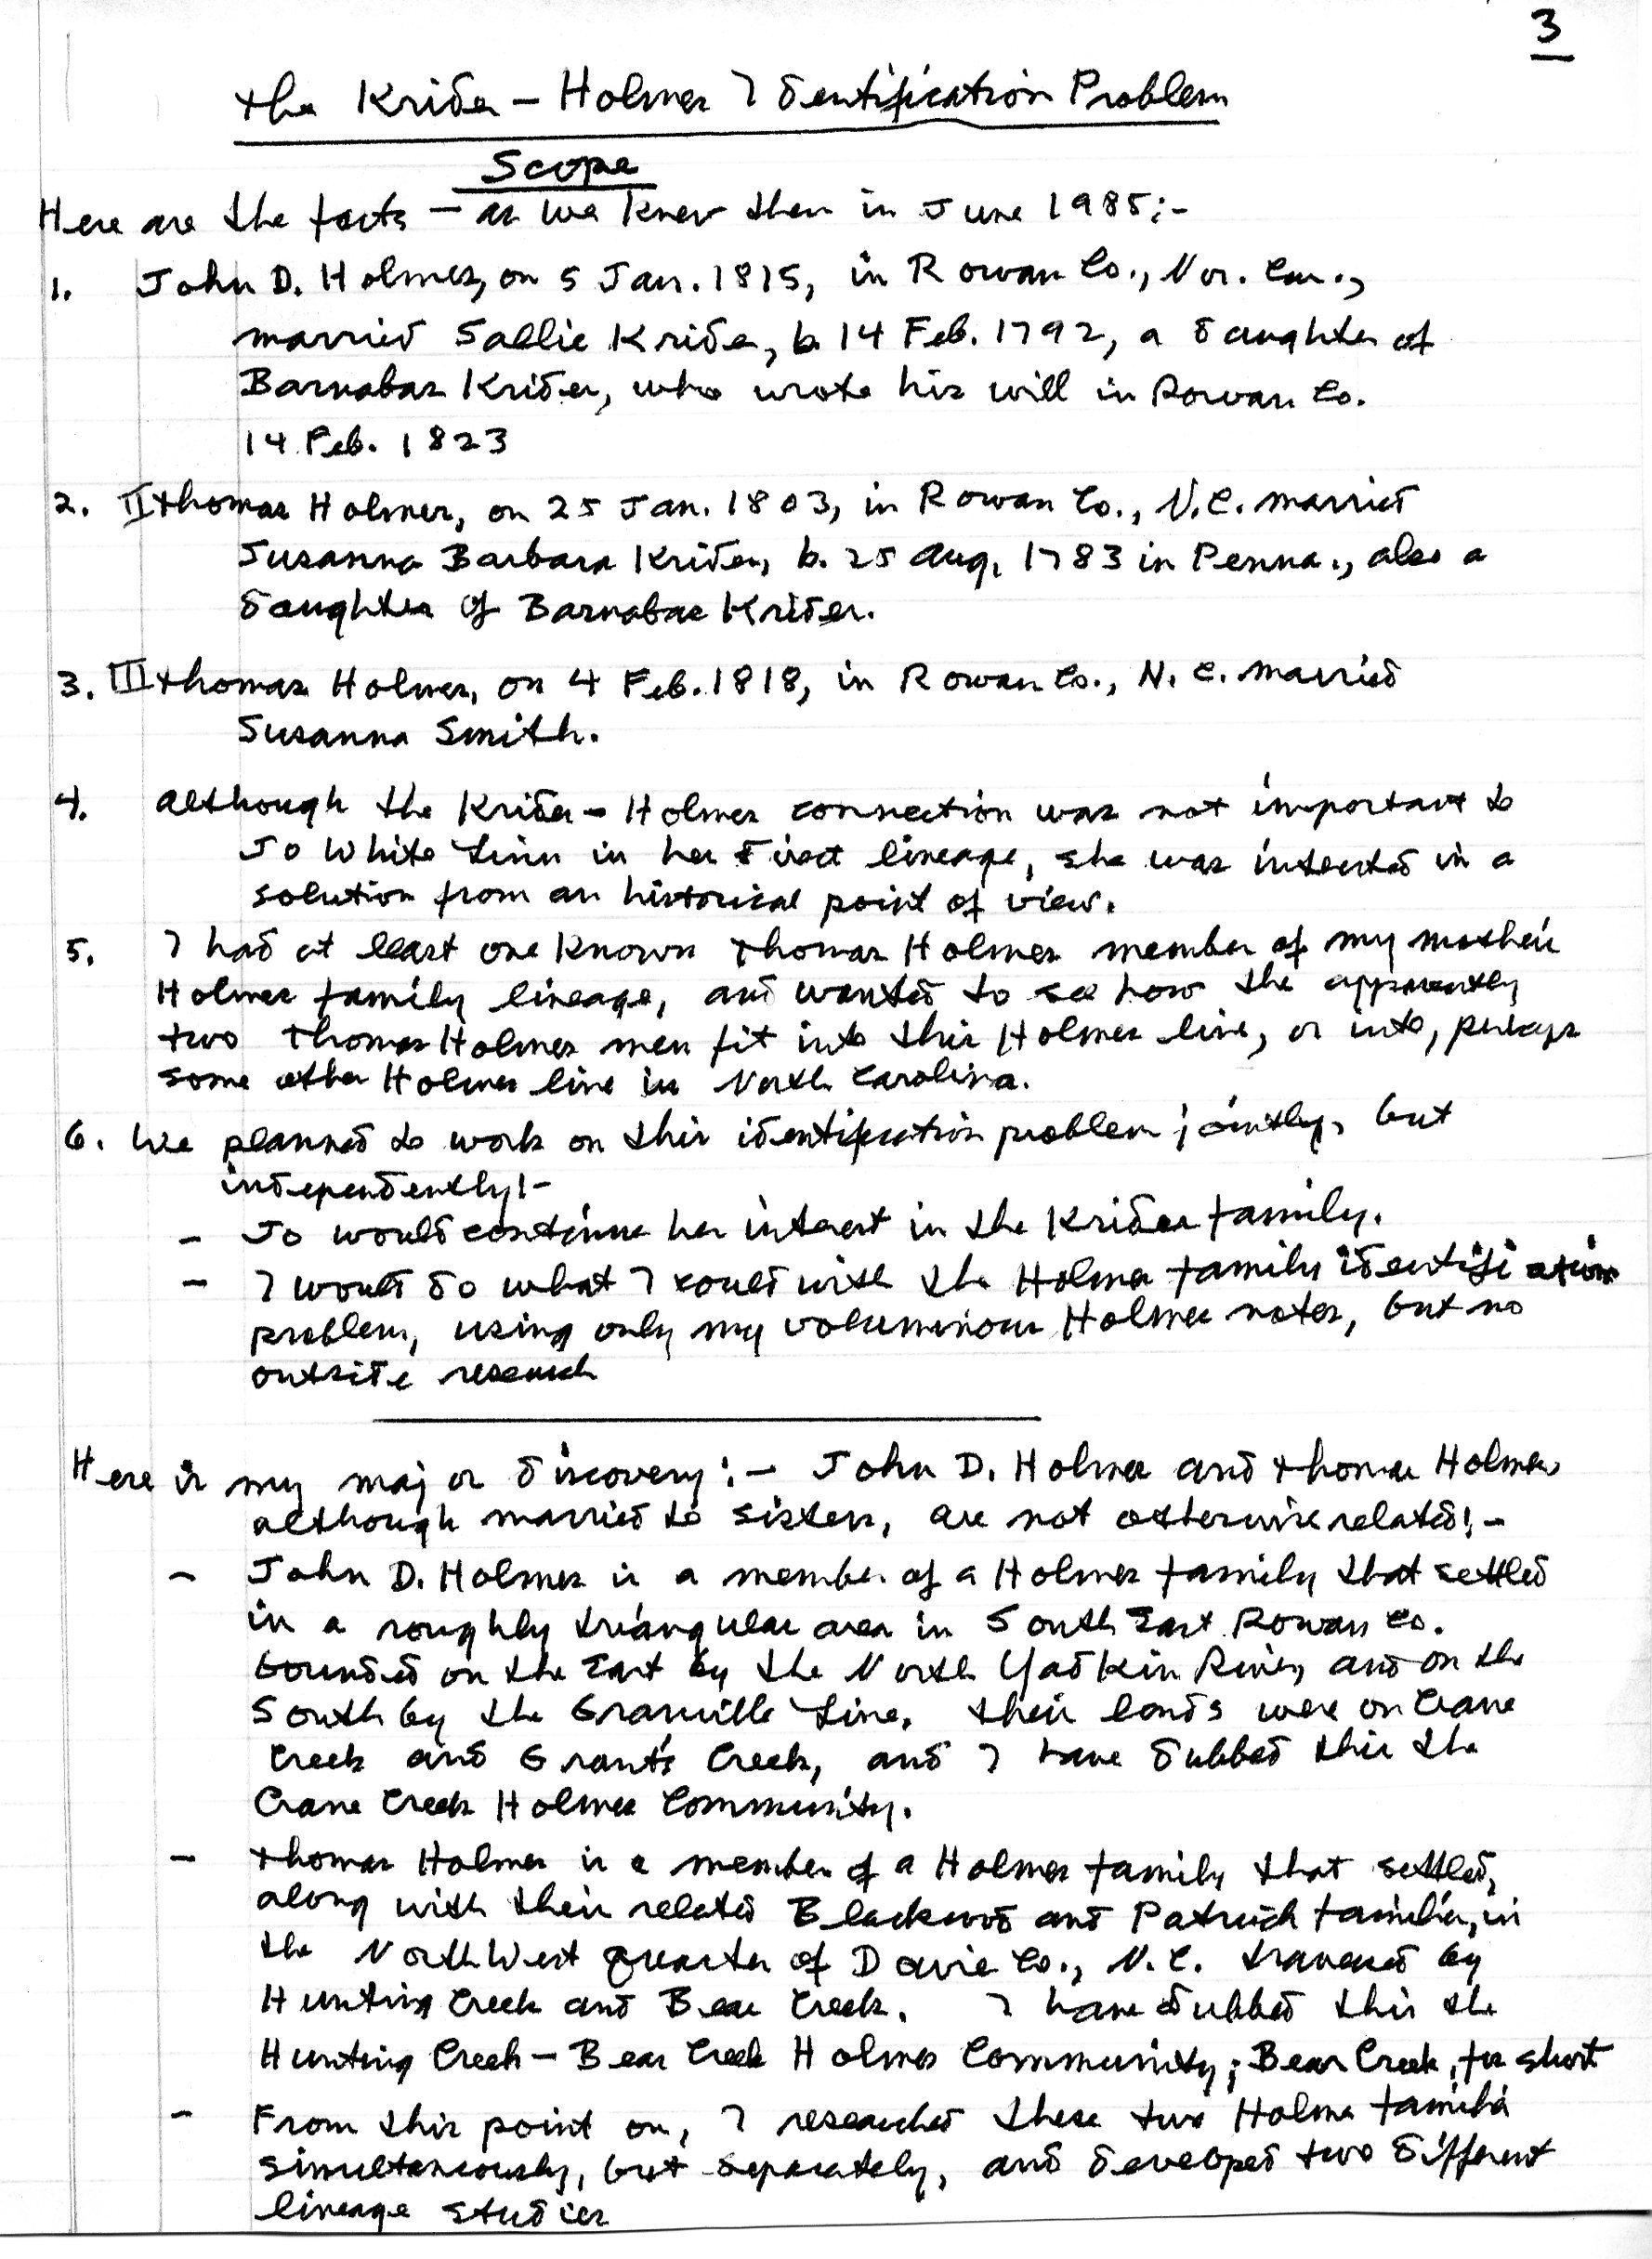 3
The Krider - Holmes Identification Problem
Scope
Here are the facts - as we knew them in June 1985:-
1. John D. Holmes, on 5 Jan. 1815, in Rowan Co., Nor. Car.,
married Sallie Krider, b. 14 Feb. 1792, a daughter of
Barnabas Krider, who wrote his will in Rowan Co.
14 Feb. 1823
2. II Thomas Holmes, on 25 Jan. 1803, in Rowan Co., N.C. married
Susanna Barbara Krider, b. 25 Aug. 1783 in Penna., also a
daughter of Barnabas Krider.
3. III Thomas Holmes, on 4 Feb. 1818, in Rowan Co., N.C. married
Susanna Smith.
4. Although the Krider - Holmes connection was not important to
Jo White Linn in her direct lineage, she was intersted in a
solution from an historical point of view.
5. I had at least one known Thomas Holmes member of my mother's
Holmes family lineage, and wanted to see how the apparently
two Thomas Holmes men fit into this Holmes line, or into, perhaps
some other Holmes line in North Carolina.
6. We planned to work on this identification problem jointly, but
independently:-
- Jo would continue her interest in the Krider family.
- I would do what I could with the Holmes family identification
problem, using only my voluminous Holmes notes, but no
outside research
Here is my major discovery:- John D. Holmes and Thomas Holmes
although married to sisters, are not otherwise related:-
- John D. Holmes is a member of a Holmes family that settled
in a roughly triangular area in South East Rowan Co.
bounded on the East by the North Yadkin River, and on the
South by the Granville Line. Their lands were on Crane
Creek and Grant's Creek, and I have dubbed this the
Crane Creek Holmes Community.
- Thomas Holmes is a member of a Holmes family that settled,
along with their related Blackwood and Patrick families, in
the North West quarter of Davie Co., N.C. traversed by
Hunting Creek and Bear Creek. I have dubbed this the
Hunting Creek - Bear Creek Holmes Community; Bear Creek, for short
- From this point on, I researched these two Holmes families
simultaneously, but separately, and developed two different
lineage studies